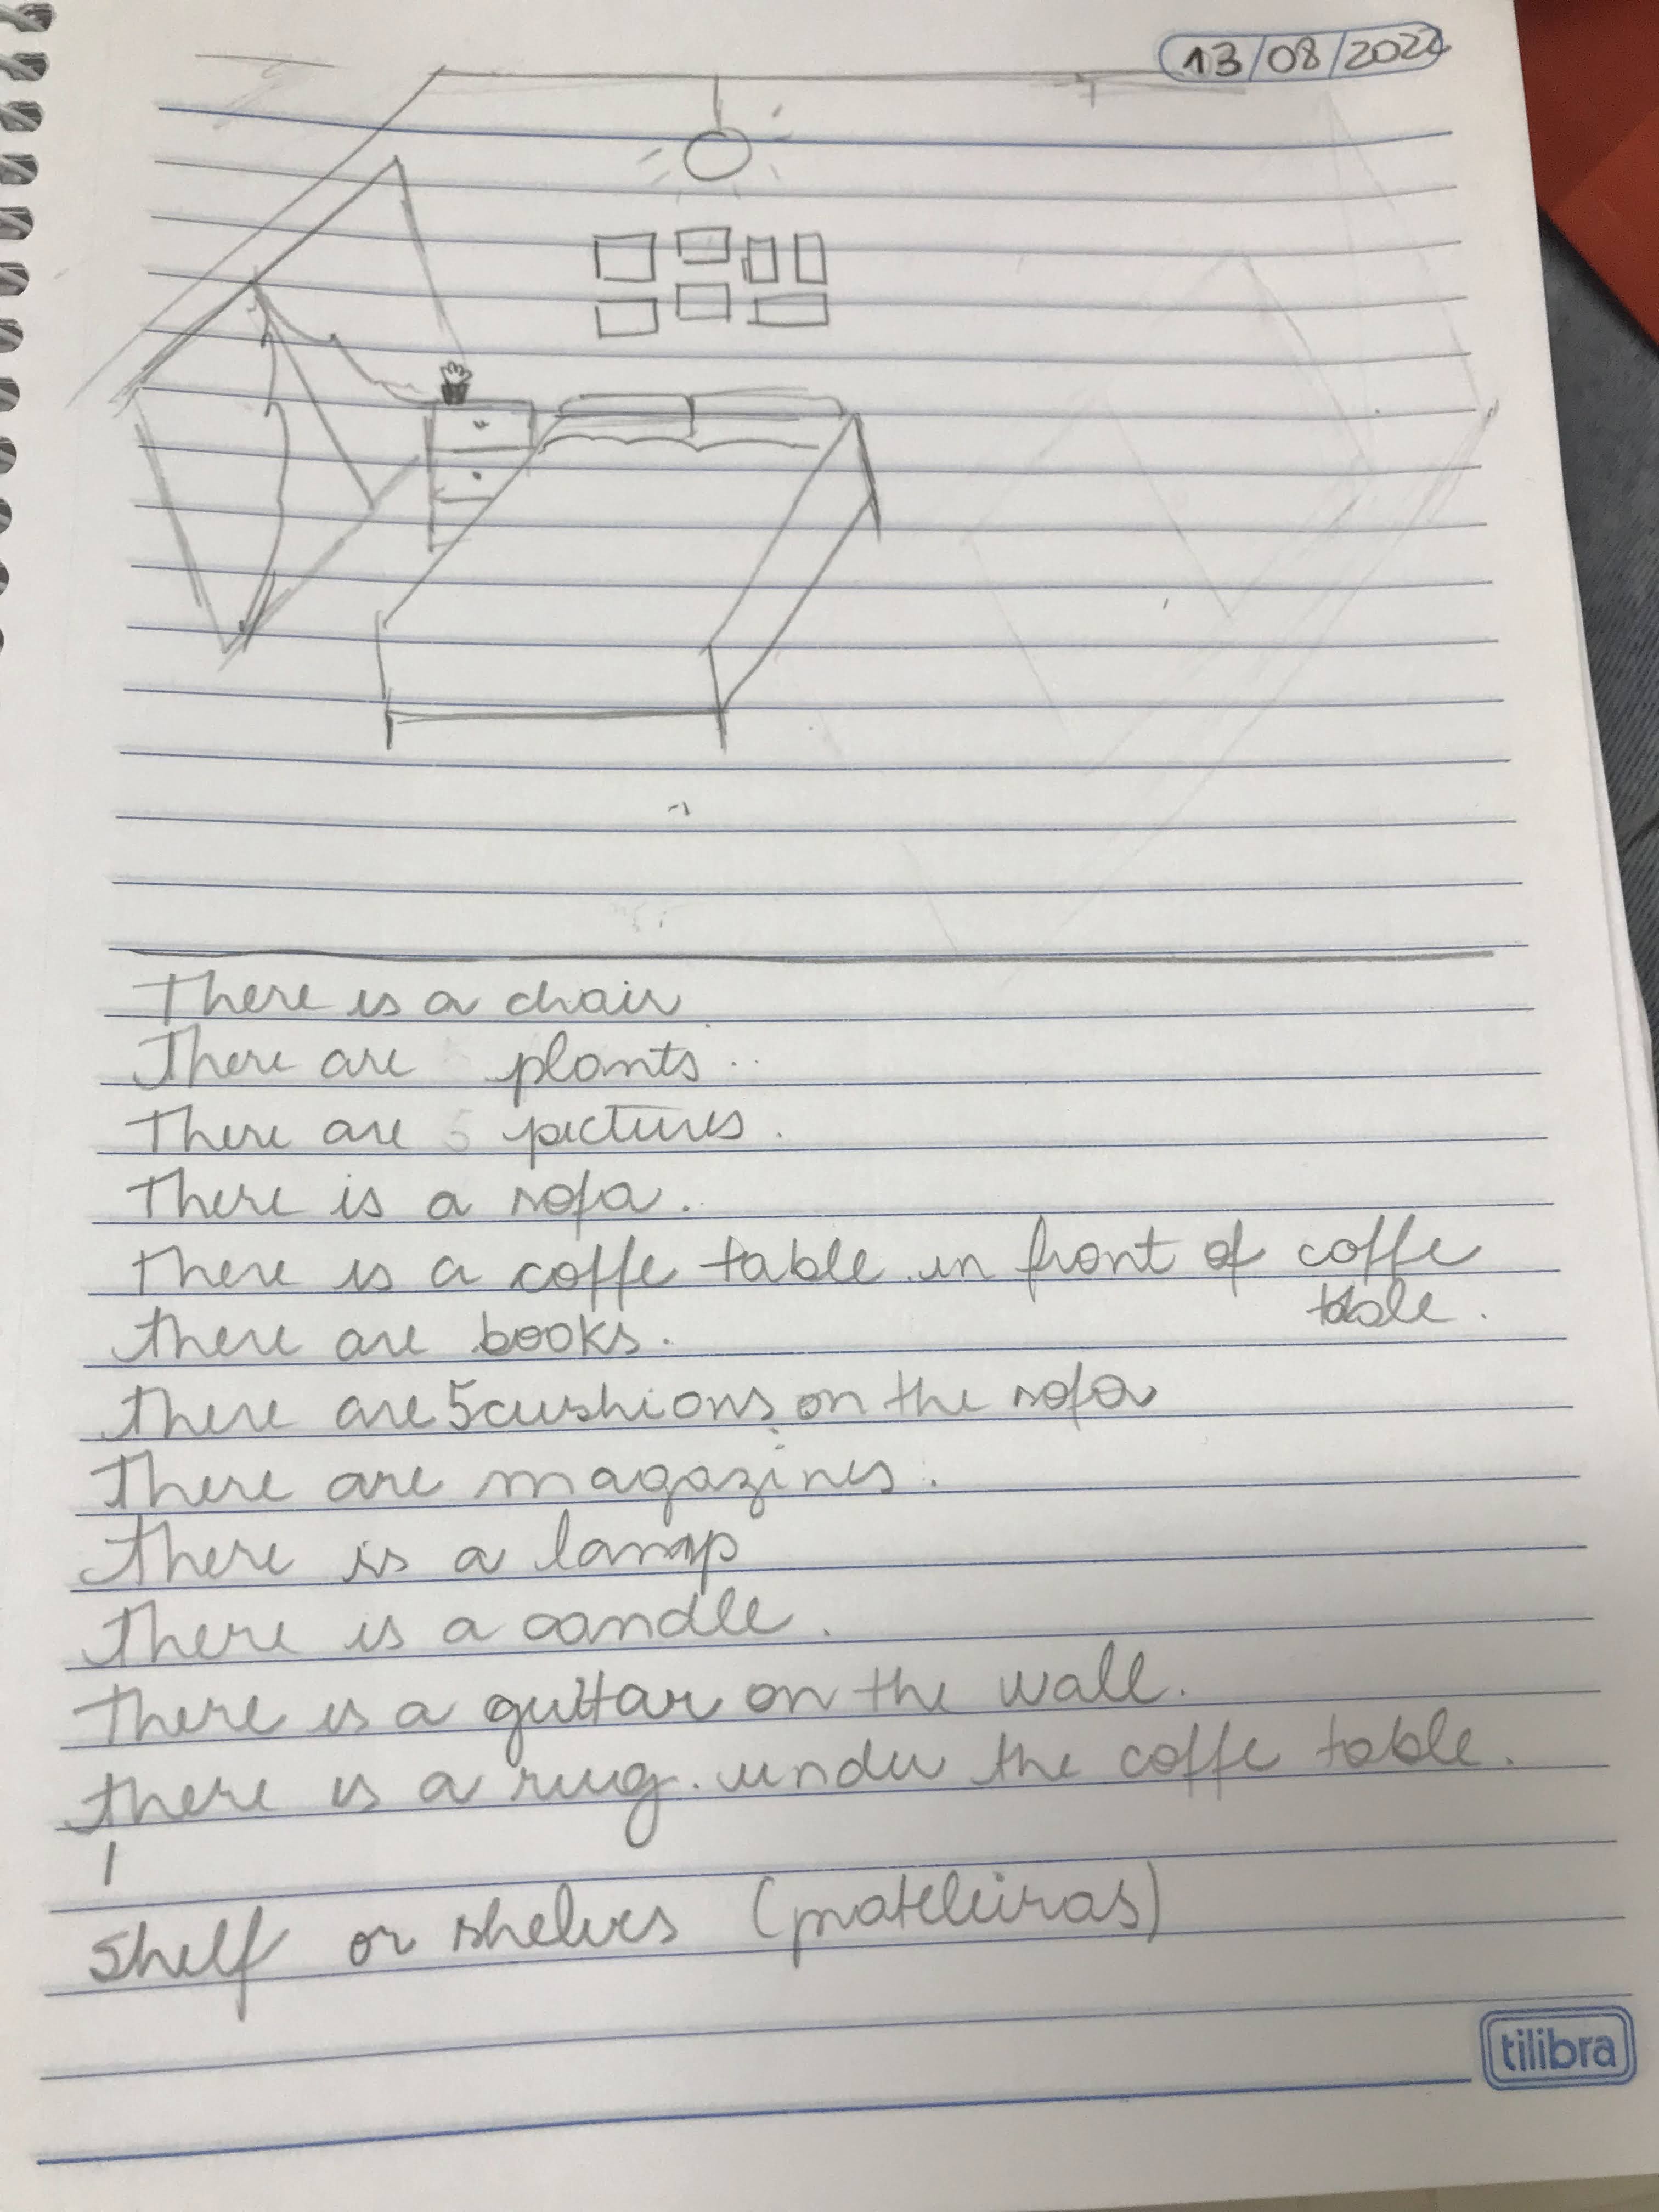 13/08/2022
There is a chair
There are plants.
There are 5 pictures.
There is a sofa.
there is a coffe table in front of coffe
table.
there are books.
there are 5 cushions on the sofa
There are magazines.
there is a lamp
there is a candle.
there is a guitar on the wall.
there is a rug. under the coffe table.
Shelf or shelves (prateleiras)
tilibra